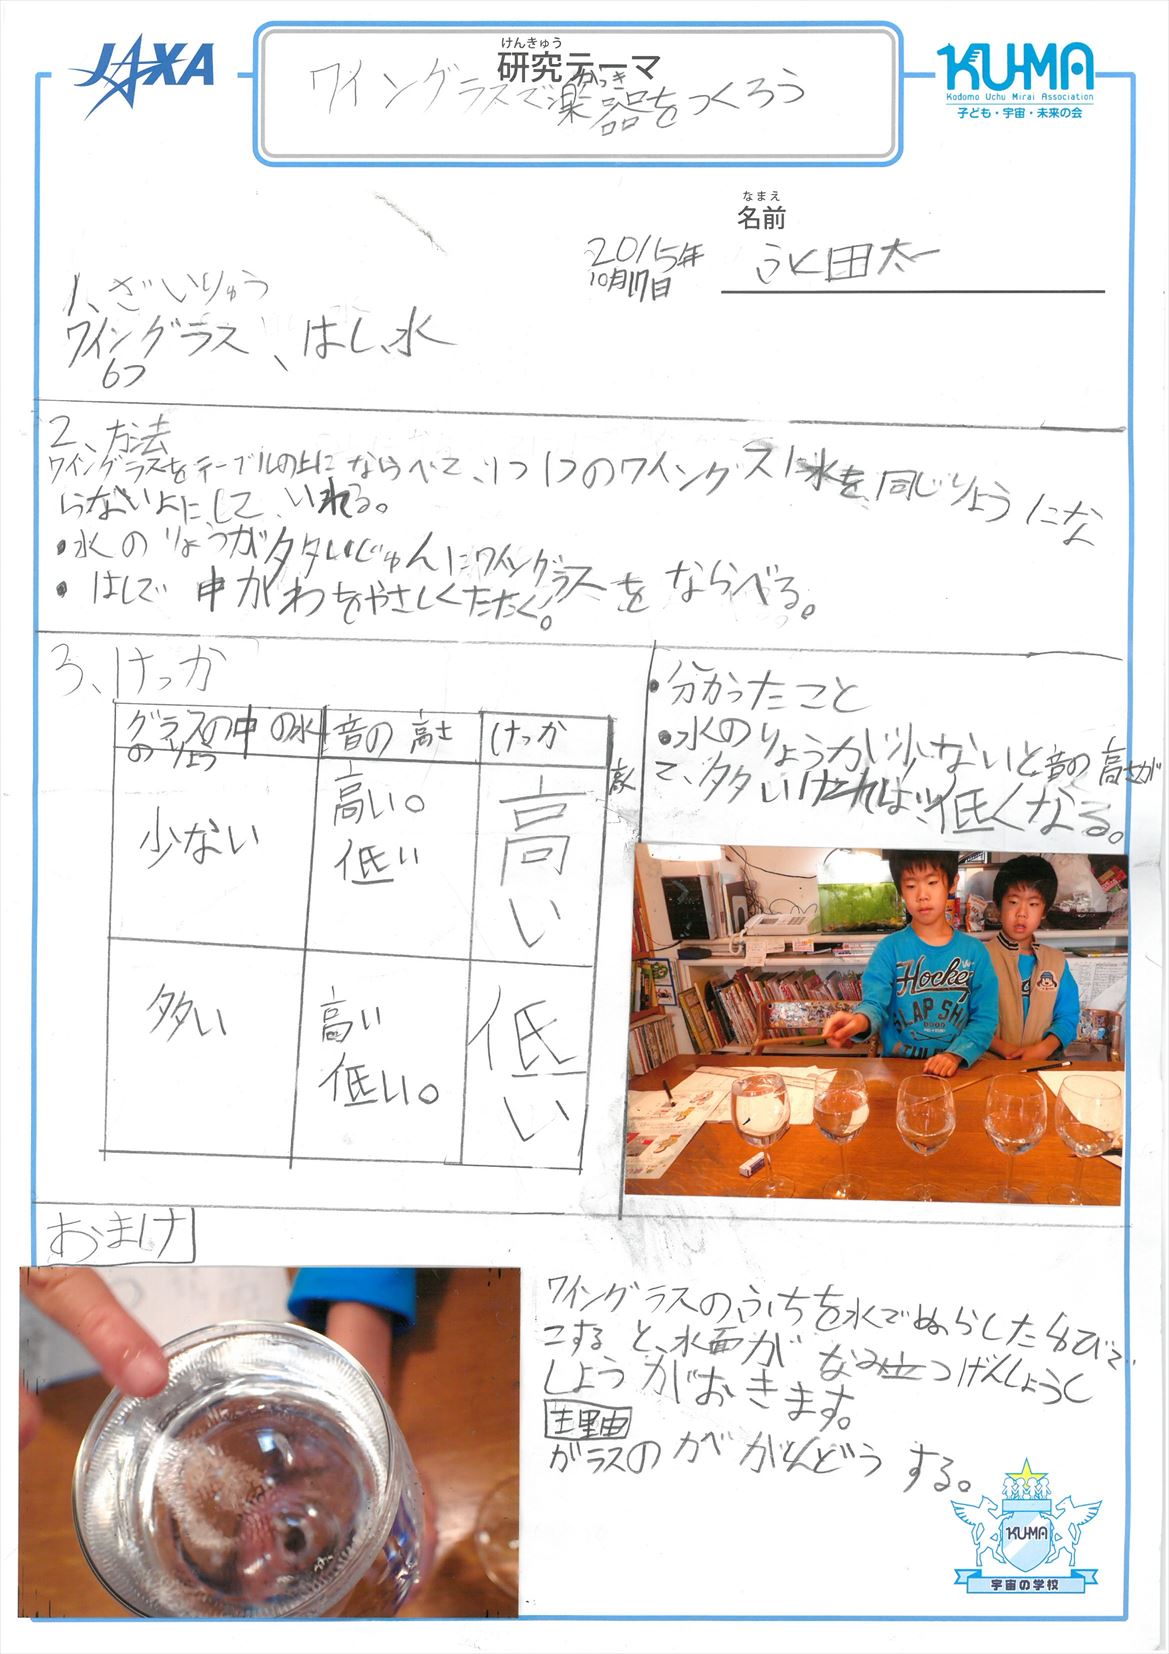 JAXA
けんきゅう
研究テーマ
ワイングラスで楽器をつくろう
がっき
KU-MA
Kodomo Uchu Mirai Association
子ども・宇宙・未来の会
なまえ
名前
2015年
10月17日
永田太一
1、ざいりょう
ワイングラス、はし、水
6つ
2、方法
ワイングラスをテーブルの上にならべて、1つ1つのワイングラスに水を同じりょうにな
らないよにして、いれる。
•水のりょうが多いじゅんにワイングラスをならべる。
•はしで中がわをやさしくたたく。
3、けっか
グラスの中の水のりょう
音の高さ
けっか
少ない
高い。
低い
高い
多い
高い
低い。
低い
•分かったこと
•水のりょうが少ないと音の高さが
高く
て、多いければ、低くなる。
Hockey
SLAP SH
おまけ
ワイングラスのふちを水でぬらしたゆびで
こすると、水面がなみ立つげんしょうし
しょうがおきます。
理由
ガラスのかべがしんどうする。
KU-MA
宇宙の学校